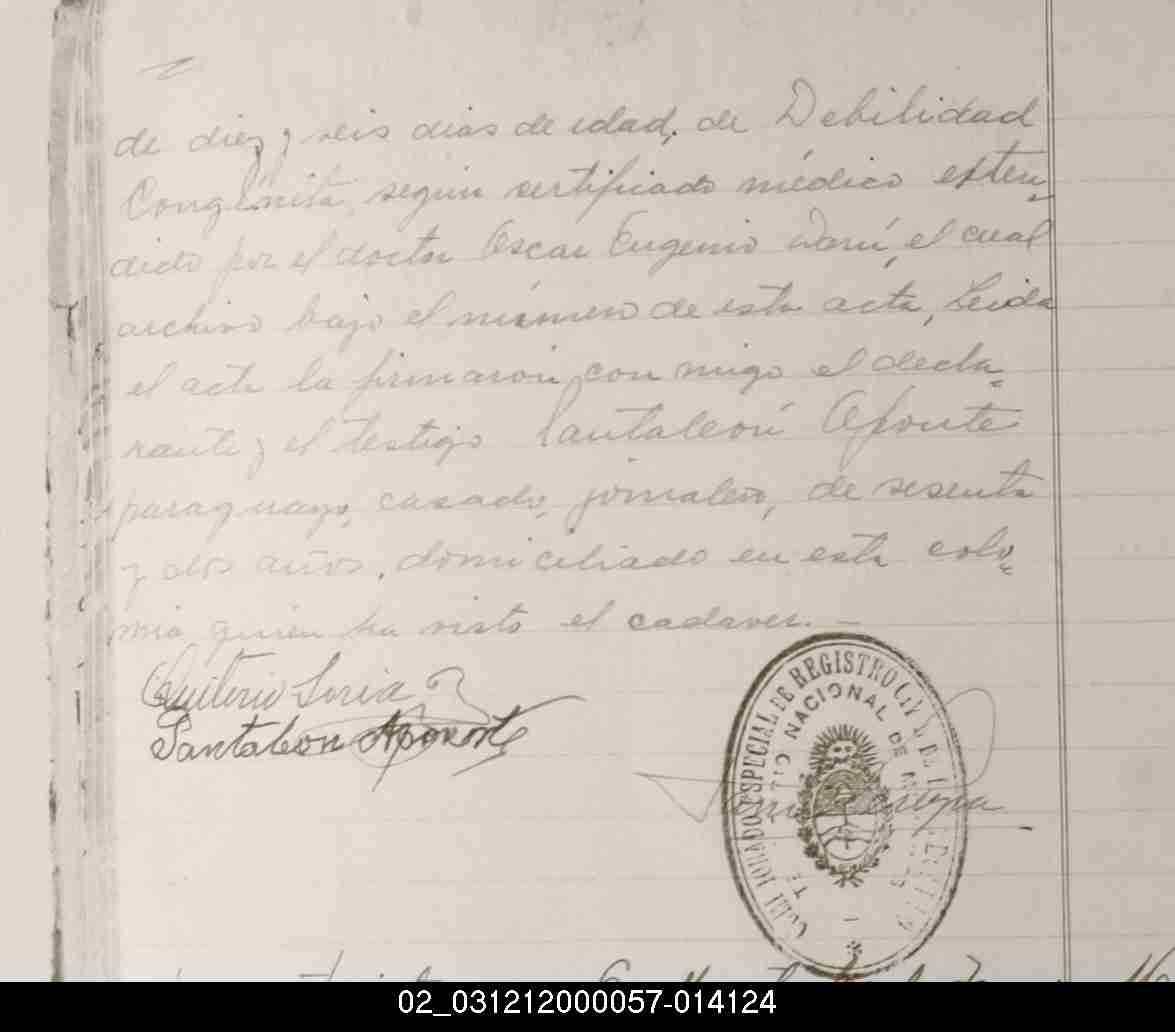 de diez y seis dias de edad, de Debilidad
Congénita, segun sertificado médico exten-
dido por el doctor Oscar Eugenio Darú, el cual
archivo bajo el número de esta acta, Leida
el acta la firmaron con migo el decla-
rante y el testigo Pantaleón Aponte
paraguayo, casado, jornalero, de sesenta
y dos años, domiciliado en esta colo-
nia, quien ha visto el cadaver. -
Quiterio Soria
Pantaleon Aponte
ESPECIAL DE REGISTRO CIVIL DE
NACIONAL DE
02_031212000057-014124